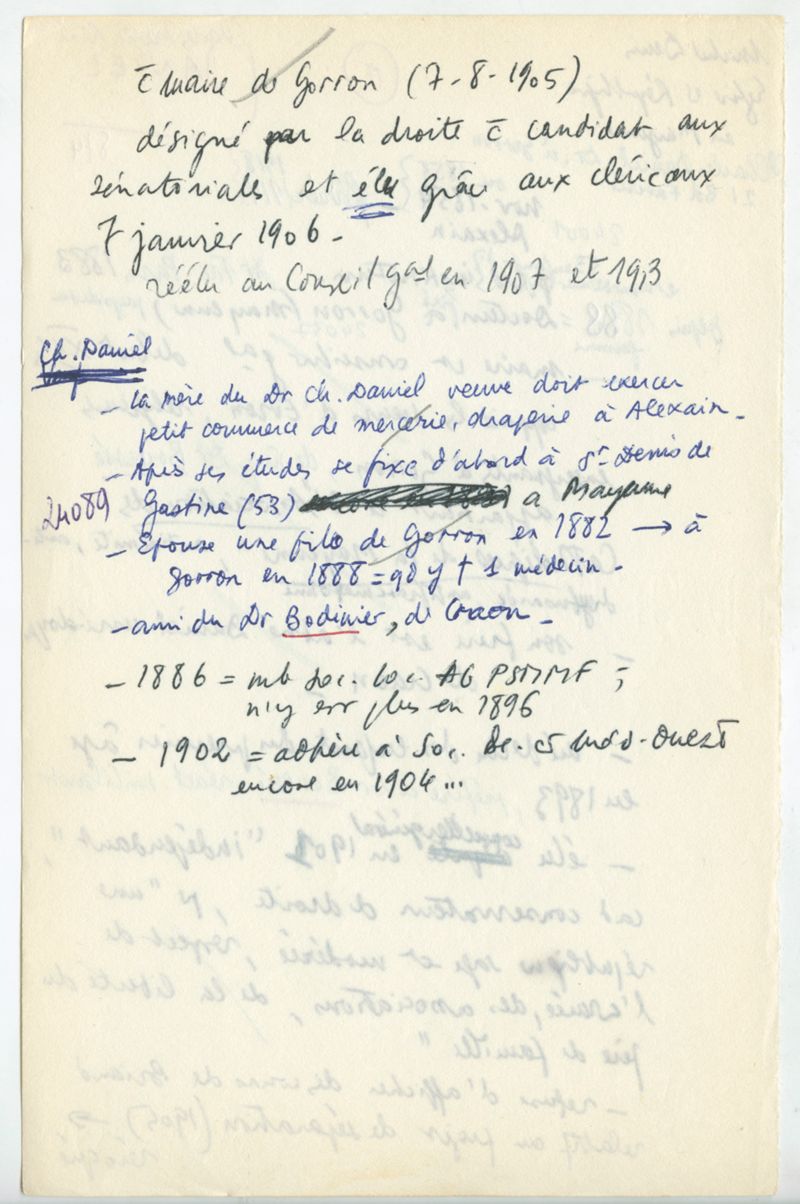 c̄ maire de Gorron (7-8-1905)
désigné par la droite c̄ candidat aux
sénatoriales et élu grâce aux cléricaux
7 janvier 1906 -
réélu au Conseil gal en 1907 et 1913
Ch. Daniel
- la mère du Dr Ch. Daniel veuve doit exercer
petit commerce de mercerie, draperie à Alexain -
- Après ses études se fixe d'abord à St Denis de
24089 Gastine (53) à Mayenne
- Epouse une fille de Gorron en 1882 → à
Gorron en 1888 = qd y † 1 médecin -
- ami du Dr Bodinier, de Craon -
- 1886 = mb Soc. loc. AG PSMMF ;
n'y est plus en 1896
- 1902 = adhère à Soc. de Méd-Ouest
encore en 1904...